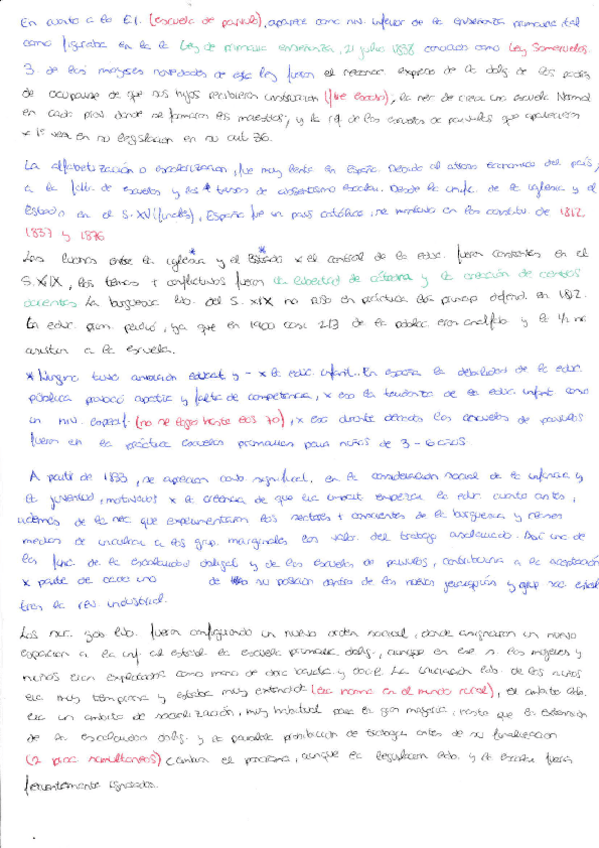 En cuanto a la E.I. (escuela de párvulo), aparece como niv. inferior de la enseñanza primaria, tal
como figuraba en la Ley de primaria enseñanza, 21 julio 1838 conocida como Ley Someruelos.
3 de las mayores novedades de esta ley fueron el reconoc. expreso de la oblig. de los padres
de ocuparse de que sus hijos recibieran instrucción (fue escaso), la nec. de crear una escuela Normal
en cada prov. donde se formaran los maestros, y la ref. de las escuelas de párvulos que aparecieron
x 1ª vez en su legislación en su art 36.
La alfabetización o escolarización, fue muy lenta en España. Debido al atraso económico del país,
a la falta de escuelas y las * tasas de absentismo escolar. Desde la unific. de la iglesia y el
Estado en el S. XV (finales), España fue un país católico, se mantuvo en las constitu. de 1812,
1837 y 1876
Las luchas entre la iglesia * y el Estado * x el control de la educ. fueron constantes en el
S. XIX, los temas + conflictivos fueron la libertad de cátedra y la creación de centros
docentes. La burguesía lib. del S. XIX no puso en práctica los princip. defend. en 1812.
La educ. prim. perdió, ya que en 1900 casi 2/3 de la poblac. eran analfab. y la 1/2 no
asistían a la escuela.
* Ninguno tuvo ambición educat y - x la educ. infantil. En España la debilidad de la educ.
pública provocó apatía y falta de competencia, x eso la tendencia de la educ. infant. como
un niv. específ. (no se logró hasta los 70), x eso durante décadas las escuelas de párvulos
fueron en la práctica escuelas primarias para niños de 3 - 6 años
A partir de 1833, se aprecian camb. significat. en la consideración social de la infancia y
la juventud, motivados x la creencia de que era import. empezar la educ. cuanto antes,
además de la nec. que experimentaron los sectores + conscientes de la burguesía y clases
medias de inculcar a los grup. marginales los valor. del trabajo asalariado. Así una de
las func. de la escolaridad obligat. y de las escuelas de párvulos, contribuiría a la aceptación
x parte de cada uno de su posición dentro de los nuevos y grup. soc. establ.
tras la rev. industrial.
Los suc. gob. lib. fueron configurando un nuevo orden social, donde asignaron un nuevo
espacio a la inf. al establ. la escuela primaria oblig., aunque en ese s. las mujeres y
niños eran explotados como mano de obra barata y dócil. La iniciación lab. de los niños
era muy temprana y estaba muy extendida (era norma en el mundo rural), el ámbito lab.
era un ámbito de socialización, muy habitual para la gran mayoría, hasta que la extensión
de la escolaridad oblig. y la paralela prohibición de trabajar antes de su finalización
(2 proc. simultáneos) cambia el panorama, aunque la legislación lab. y la escolar fueron
frecuentemente ignoradas.